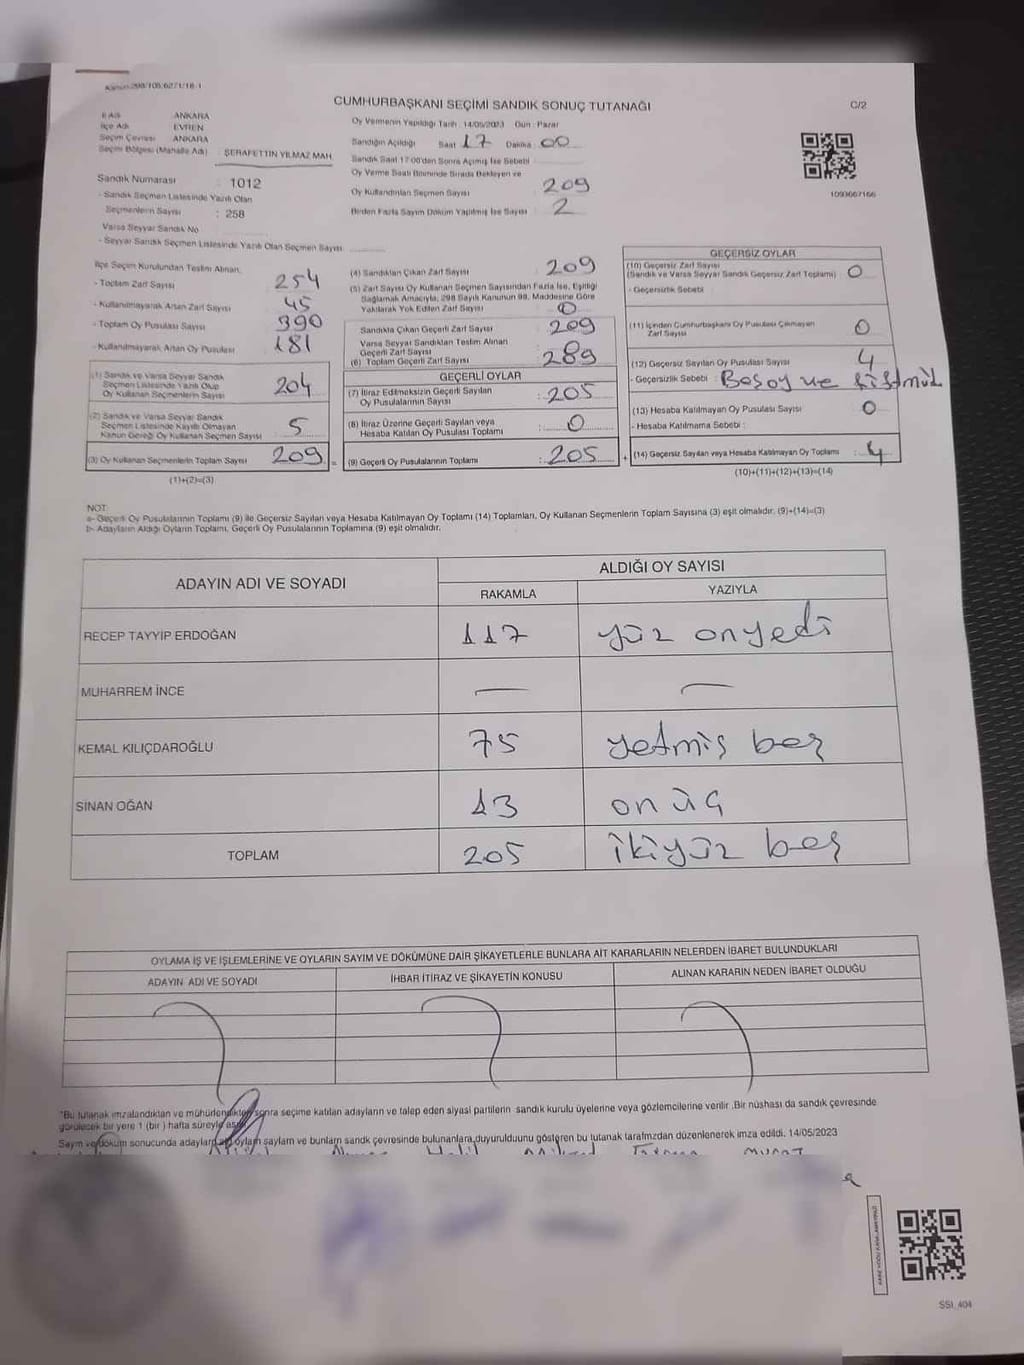 CUMHURBAŞKANI SEÇİMİ SANDIK SONUÇ TUTANAĞI
C/2
İl Adı ANKARA
İlçe Adı EVREN
Seçim Çevresi ANKARA
Seçim Bölgesi (Mahalle Adı) : ŞERAFETTİN YILMAZ MAH.
Sandık Numarası : 1012
- Sandık Seçmen Listesinde Yazılı Olan
Seçmenlerin Sayısı : 258
Varsa Seyyar Sandık No
- Seyyar Sandık Seçmen Listesinde Yazılı Olan Seçmen Sayısı
Oy Vermenin Yapıldığı Tarih : 14/05/2023 Gün : Pazar
Sandığın Açıldığı Saat 17 Dakika 00
Sandık Saat 17:00'den Sonra Açılmış İse Sebebi
Oy Verme Saati Bitiminde Sırada Bekleyen ve
Oy Kullandırılan Seçmen Sayısı 209
Birden Fazla Sayım Döküm Yapılmış İse Sayısı 2
1093667166
İlçe Seçim Kurulundan Teslim Alınan
- Toplam Zarf Sayısı 254
- Kullanılmayarak Artan Zarf Sayısı 45
- Toplam Oy Pusulası Sayısı 390
- Kullanılmayarak Artan Oy Pusulası 181
(1) Sandık ve Varsa Seyyar Sandık
Seçmen Listesinde Yazılı Olup
Oy Kullanan Seçmenlerin Sayısı 204
(2) Sandık ve Varsa Seyyar Sandık
Seçmen Listesinde Kayıtlı Olmayan
Kanun Gereği Oy Kullanan Seçmen Sayısı 5
(3) Oy Kullanan Seçmenlerin Toplam Sayısı 209
(1)+(2)=(3)
(4) Sandıktan Çıkan Zarf Sayısı 209
(5) Zarf Sayısı Oy Kullanan Seçmen Sayısından Fazla İse, Eşitliği
Sağlamak Amacıyla, 298 Sayılı Kanunun 98. Maddesine Göre
Yakılarak Yok Edilen Zarf Sayısı 0
Sandıkta Çıkan Geçerli Zarf Sayısı 209
Varsa Seyyar Sandıktan Teslim Alınan
Geçerli Zarf Sayısı
(6) Toplam Geçerli Zarf Sayısı 289
GEÇERLİ OYLAR
(7) İtiraz Edilmeksizin Geçerli Sayılan
Oy Pusulalarının Sayısı : 205
(8) İtiraz Üzerine Geçerli Sayılan veya
Hesaba Katılan Oy Pusulası Toplamı : 0
= (9) Geçerli Oy Pusulalarının Toplamı : 205 +
GEÇERSİZ OYLAR
(10) Geçersiz Zarf Sayısı
(Sandık ve Varsa Seyyar Sandık Geçersiz Zarf Toplamı) 0
- Geçersizlik Sebebi :
(11) İçinden Cumhurbaşkanı Oy Pusulası Çıkmayan
Zarf Sayısı 0
(12) Geçersiz Sayılan Oy Pusulası Sayısı 4
- Geçersizlik Sebebi : Boş oy ve
(13) Hesaba Katılmayan Oy Pusulası Sayısı 0
- Hesaba Katılmama Sebebi :
(14) Geçersiz Sayılan veya Hesaba Katılmayan Oy Toplamı : 4
(10)+(11)+(12)+(13)=(14)
NOT:
a- Geçerli Oy Pusulalarının Toplamı (9) ile Geçersiz Sayılan veya Hesaba Katılmayan Oy Toplamı (14) Toplamları, Oy Kullanan Seçmenlerin Toplam Sayısına (3) eşit olmalıdır. (9)+(14)=(3)
b- Adayların Aldığı Oyların Toplamı, Geçerli Oy Pusulalarının Toplamına (9) eşit olmalıdır.
ADAYIN ADI VE SOYADI ALDIĞI OY SAYISI
RAKAMLA YAZIYLA
RECEP TAYYİP ERDOĞAN 117 yüz onyedi
MUHARREM İNCE — —
KEMAL KILIÇDAROĞLU 75 yetmiş beş
SİNAN OĞAN 13 on üç
TOPLAM 205 ikiyüz beş
OYLAMA İŞ VE İŞLEMLERİNE VE OYLARIN SAYIM VE DÖKÜMÜNE DAİR ŞİKAYETLERLE BUNLARA AİT KARARLARIN NELERDEN İBARET BULUNDUKLARI
ADAYIN ADI VE SOYADI İHBAR İTİRAZ VE ŞİKAYETİN KONUSU ALINAN KARARIN NEDEN İBARET OLDUĞU
"Bu tutanak imzalandıktan ve mühürlendikten sonra seçime katılan adayların ve talep eden siyasi partilerin sandık kurulu üyelerine veya gözlemcilerine verilir .Bir nüshası da sandık çevresinde
görülecek bir yere 1 (bir ) hafta süreyle asılır.
Sayım ve döküm sonucunda adayların oyların sayılarını ve bunların sandık çevresinde bulunanlara duyurulduğunu gösteren bu tutanak tarafımızdan düzenlenerek imza edildi. 14/05/2023
SSI_404